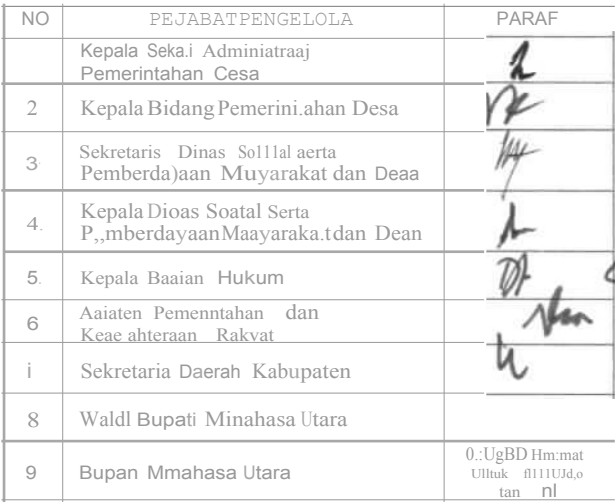 NO PEJABATPENGELOLA PARAF
Kepala Seka.i Adminiatraaj
Pemerintahan Cesa
2 Kepala Bidang Pemerini.ahan Desa
3 Sekretaris Dinas So111al aerta
Pemberda)aan Muyarakat dan Deaa
4. Kepala Dioas Soatal Serta
P,,mberdayaanMaayaraka.tdan Dean
5. Kepala Baaian Hukum
6 Aaiaten Pemenntahan dan
Keae ahteraan Rakvat
i Sekretaria Daerah Kabupaten
8 Waldl Bupati Minahasa Utara
9 Bupan Mmahasa Utara
0.:UgBD Hm:mat
Ulltuk fl111UJd,o
tan nl